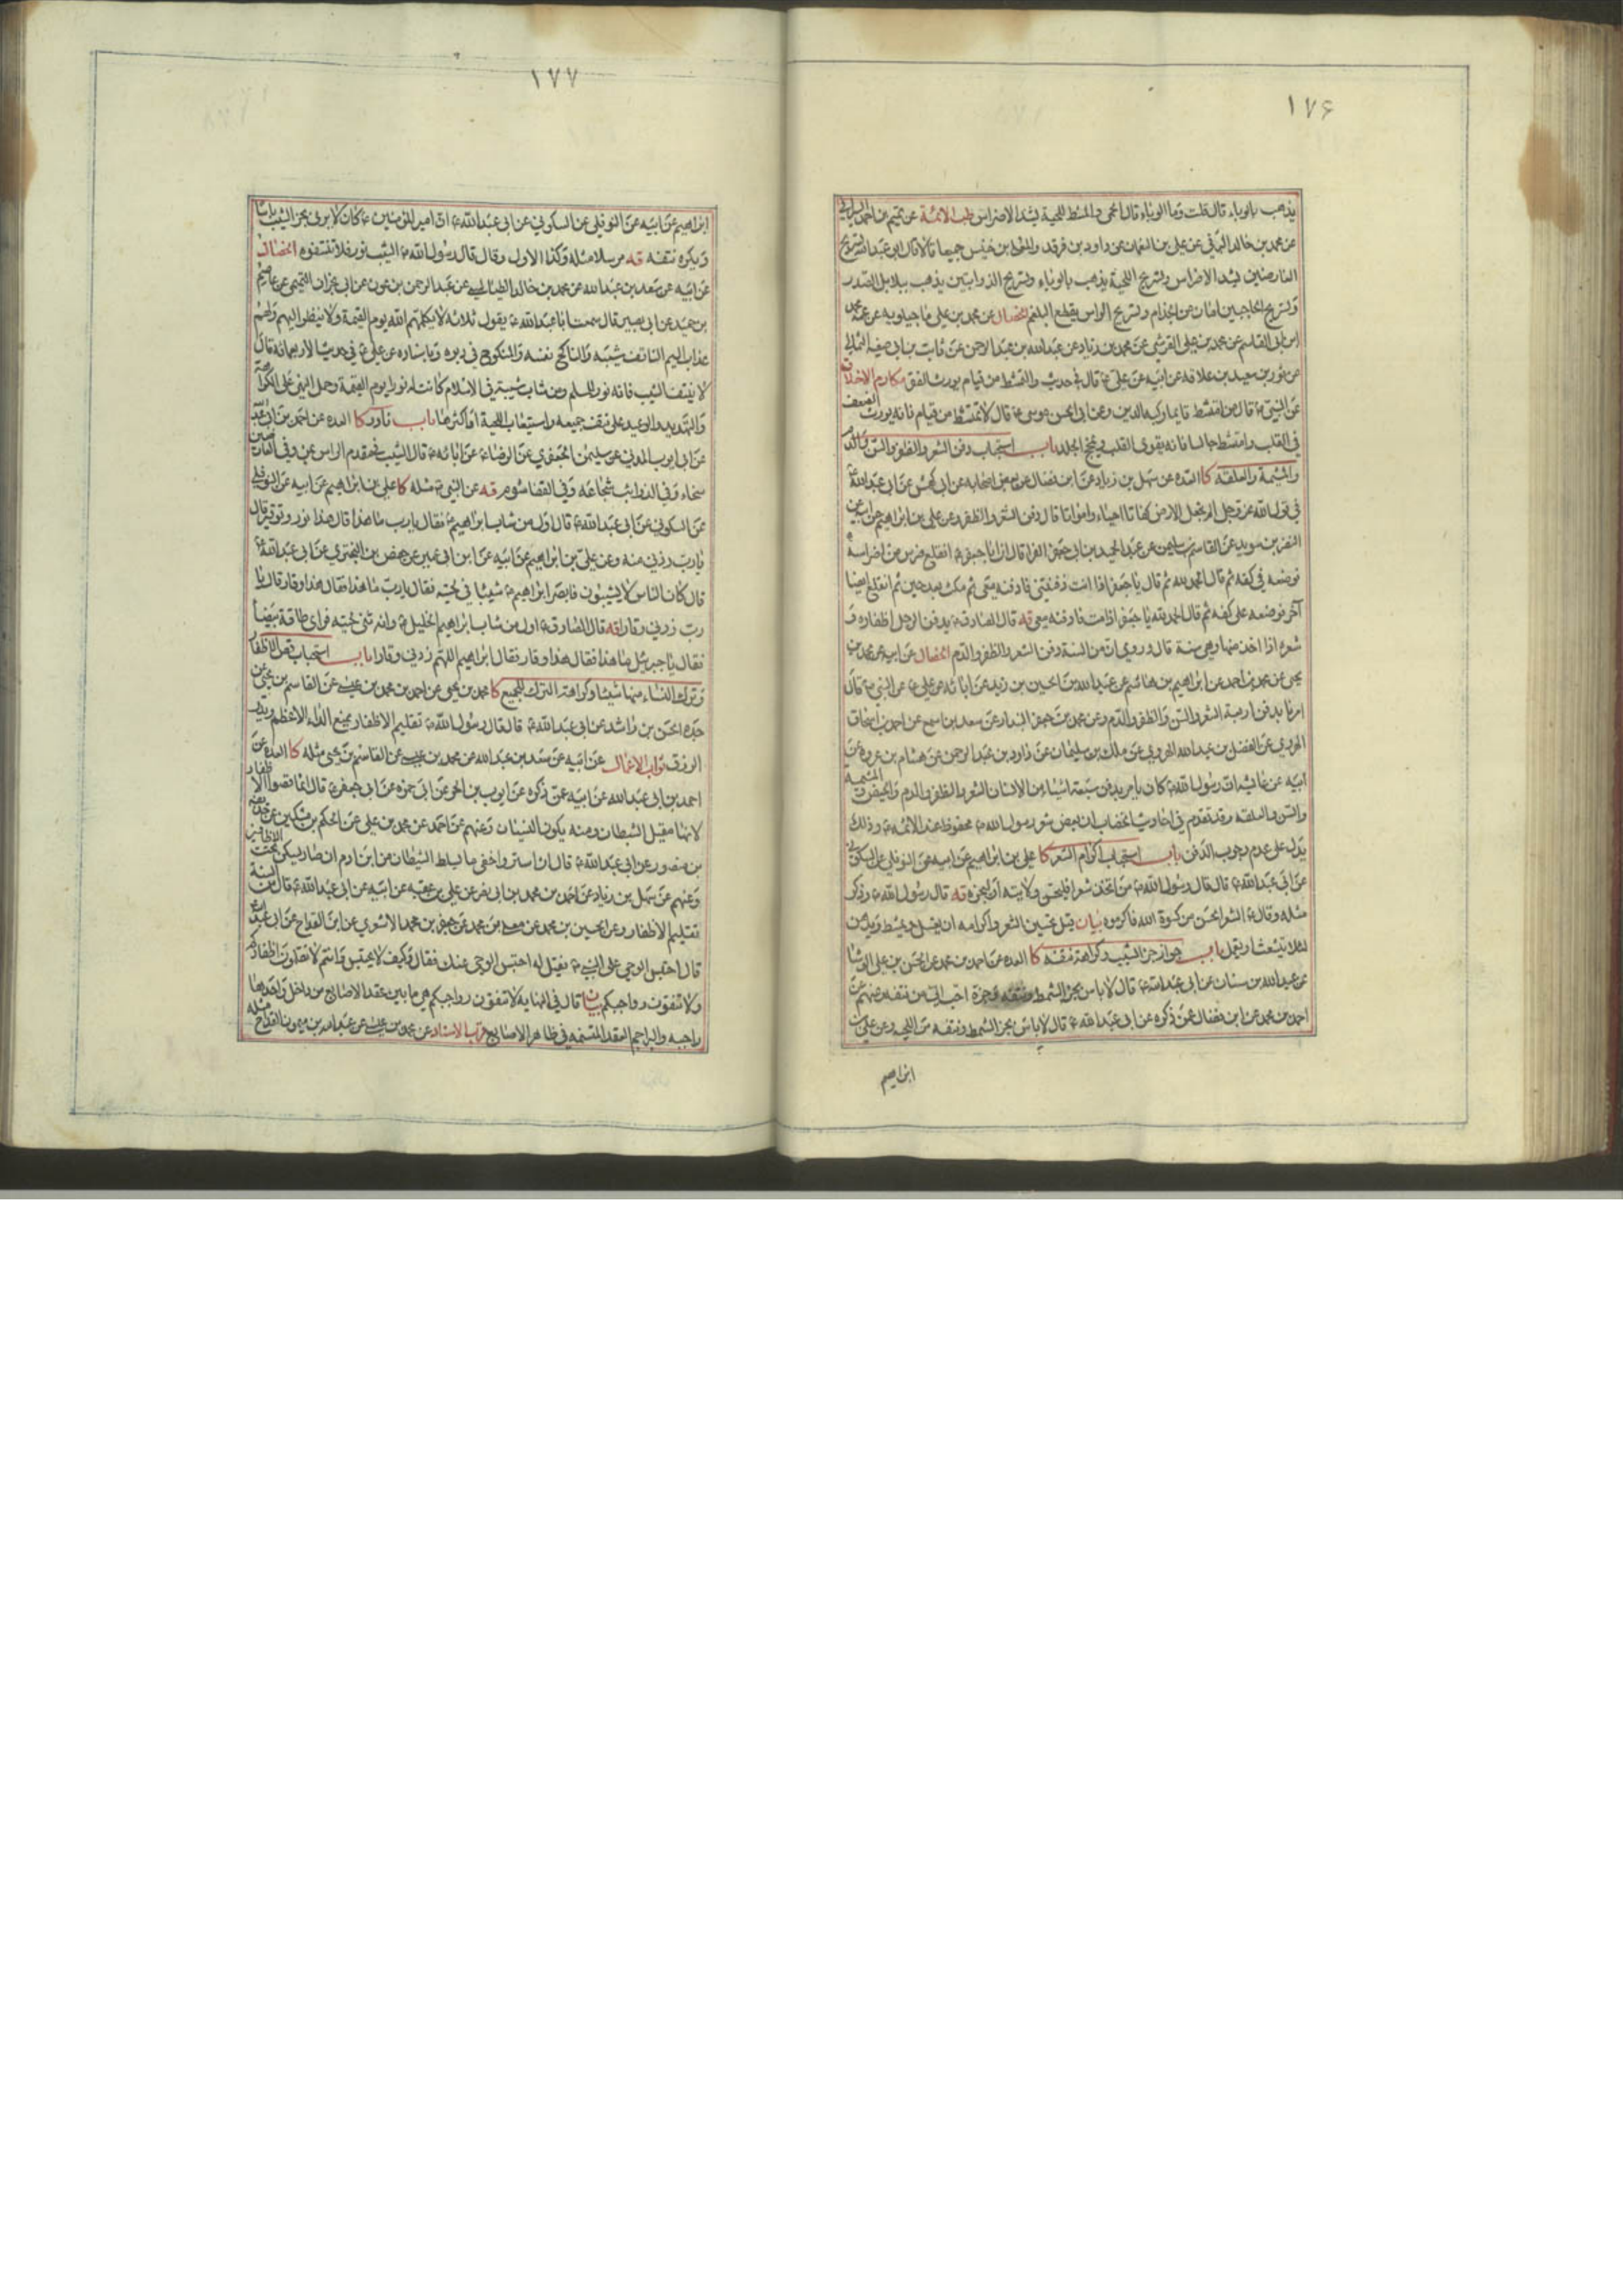 ١٧۶
يذهب بالوباء قال قلت وما الوباء قال الحمى والمشط للحية يشد الاضراس طب الائمة عن تميم بن احمد السيرافي
عن محمد بن خالد البرقي عن علي بن النعمان عن داود بن فرقد والمعلى بن خنيس جميعا قالا قال ابو عبد الله تسريح
العارضين يشد الاضراس وتسريح اللحية يذهب بالوباء وتسريح الذوابتين يذهب ببلابل الصدر
وتسريح الحاجبين امان من الجذام وتسريح الراس يقطع البلغم الخصال عن محمد بن علي ماجيلويه عن عمه محمد
ابن ابي القاسم عن محمد بن علي القرشي عن محمد بن زياد عن عبد الله بن عبد الرحمن عن ثابت بن ابي صفية الثمالي
عن ثور بن سعيد بن علاقة عن ابيه عن علي ع قال في حديث والتمشط من قيام يورث الفقر مكارم الاخلاق
عن النبي ص قال من امتشط قايما ركبه الدين وعن ابي الحسن موسى ع قال لا تمتشط من قيام فانه يورث الضعف
في القلب وامتشط جالسا فانه يقوى القلب ويمخج الجلد باب استحباب دفن الشعر والظفر والسن والدم
والمشيمة والعلقة كا العدة عن سهل بن زياد عن ابن فضال عن بعض اصحابه عن ابي كهمس عن ابي عبد الله ع
في قول الله عز وجل الم نجعل الارض كفاتا احياء وامواتا قال دفن الشعر والظفر وعن علي بن ابراهيم عن ابيه عن
النضر بن سويد عن القاسم بن سليمن عن عبد الحميد بن ابي جعفر الفرا قال ان ابا جعفر ع انقلع ضرس من اضراسه
فوضعه في كفه ثم قال الحمد لله ثم قال يا جعفر اذا انت دفنتني فادفنه معي ثم مكث بعد حين ثم انقلع ايضا
آخر فوضعه على كفه ثم قال الحمد لله يا جعفر اذا مت فادفنه معي قه قال الصادق ع يدفن الرجل اظفاره و
شعره اذا اخذ منها وهي سنة قال وروي ان من السنة دفن الشعر والظفر والدم الخصال عن ابيه عن محمد بن
يحيى عن محمد بن احمد عن ابراهيم بن هاشم عن عبد الله بن الحسين بن زيد عن ابائه عن علي ع عن النبي ص قال
امرنا بدفن اربعة الشعر والسن والظفر والدم وعن محمد بن جعفر البندار عن سعد بن اسمع عن احمد بن اسحاق
الهروي عن الفضل بن عبد الله الهروي عن ملك بن سليمان عن داود بن عبد الرحمن عن هشام بن عروة عن
ابيه عن عائشة ان رسول الله ص كان يامر بدفن سبعة اشياء من الانسان الشعر والظفر والدم والحيض والمشيمة
والسن والعلقة وقد تقدم في احاديث الخضاب ان بعض شعر رسول الله ص محفوظ عند الائمة ع وذلك
يدل على عدم وجوب الدفن باب استحباب اكرام الشعر كا علي بن ابراهيم عن ابيه عن النوفلي عن السكوني
عن ابي عبد الله ع قال قال رسول الله ص من اتخذ شعرا فليحسن ولايته او ليجزه قه قال رسول الله ص وذكر
مثله وقال ع الشعر الحسن من كسوة الله فاكرموه بيان قيل تحسين الشعر واكرامه ان يغسل ويمشط ويدهن
لئلا يتشعث او يقمل باب جواز جز الشيب وكراهة نتفه كا العدة عن احمد بن محمد عن الحسن بن علي الوشا
عن عبد الله بن سنان عن ابي عبد الله ع قال لا باس بجز الشمط ونتفه وجزه احب الي من نتفه وعنهم عن
احمد بن محمد عن ابن فضال عمن ذكره عن ابي عبد الله ع قال لا باس بجز الشمط ونتفه من اللحية وعن علي بن
ابراهيم
١٧٧
ابراهيم عن ابيه عن النوفلي عن السكوني عن ابي عبد الله ع ان امير المؤمنين ع كان لا يرى بجز الشيب باسا
ويكره نتفه قه مرسلا مثله وكذا الاول وقال قال رسول الله ص الشيب نور فلا تنتفوه الخصال
عن ابيه عن سعد بن عبد الله عن محمد بن خالد الطيالسي عن عبد الرحمن بن عون عن ابن ابي نجران التميمي عن عاصم
بن حميد عن ابي بصير قال سمعت ابا عبد الله ع يقول ثلاثة لا يكلمهم الله يوم القيمة ولا ينظر اليهم ولهم
عذاب اليم الناتف شيبه والناكح نفسه والمنكوح في دبره وباسناده عن علي ع في حديث الاربعمائة قال
لا ينتف الشيب فانه نور للمسلم ومن شاب شيبة في الاسلام كانت له نورا يوم القيمة وحمل النهي على الكراهة
والتهديد والوعيد على نتف جميعه واستيعاب اللحية او اكثرها باب نادر كا العدة عن احمد بن ابي عبد الله
عن ابي ايوب المدني عن سليمن الجعفري عن الرضا ع عن ابائه ع قال الشيب في مقدم الراس يمن وفي العارضين
سخاء وفي الذوائب شجاعة وفي القفا شوم قه عن النبي ص مثله كا علي بن ابراهيم عن ابيه عن النوفلي
عن السكوني عن ابي عبد الله ع قال اول من شاب ابراهيم ع فقال يا رب ما هذا قال هذا نور وتوقير قال
يا رب زدني منه وعن علي بن ابراهيم عن ابيه عن ابن ابي عمير عن حفص بن البختري عن ابي عبد الله ع
قال كان الناس لا يشيبون فابصر ابراهيم ع شيبا في لحيته فقال يا رب ما هذا فقال هذا وقار قال يا
رب زدني وقارا قه قال الصادق ع اول من شاب ابراهيم الخليل ع وانه ثنى لحيته فراى طاقة بيضاء
فقال يا جبرئيل ما هذا فقال هذا وقار فقال ابراهيم اللهم زدني وقارا باب استحباب قص الاظفار
وترك النساء منها شيئا وكراهة الترك للجميع كا محمد بن يحيى عن احمد بن محمد بن عيسى عن القاسم بن يحيى عن
جده الحسن بن راشد عن ابي عبد الله ع قال قال رسول الله ص تقليم الاظفار يمنع الداء الاعظم ويدر
الرزق ثواب الاعمال عن ابيه عن سعد بن عبد الله عن محمد بن عيسى عن القاسم بن يحيى مثله كا العدة عن
احمد بن ابي عبد الله عن ابيه عمن ذكره عن ايوب بن الحر عن ابي حمزة عن ابي جعفر ع قال انما قصوا الاظفار
لانها مقيل الشيطان ومنه يكون النسيان وعنهم عن احمد عن محمد بن علي عن الحكم بن مسكين عن حذيفة
بن منصور عن ابي عبد الله ع قال ان استر واخفى ما يسلط الشيطان من ابن ادم ان صار يسكن تحت الاظافير
وعنهم عن سهل بن زياد عن احمد بن محمد بن ابي نصر عن علي بن عقبة عن ابيه عن ابي عبد الله ع قال من السنة
تقليم الاظفار وعن الحسين بن محمد عن معلى بن محمد عن جعفر بن محمد الاشعري عن ابن القداح عن ابي عبد الله ع
قال احتبس الوحي على النبي ص فقيل له احتبس الوحي عنك فقال وكيف لا يحتبس وانتم لا تقلمون اظفاركم
ولا تنقون رواجبكم بيان قال في النهاية لا تنقون رواجبكم هي ما بين عقد الاصابع من داخل واحدها
راجبة والبراجم العقد المتسنمة في ظاهر الاصابع قرب الاسناد عن محمد بن عيسى عن عبد الله بن ميمون القداح مثله